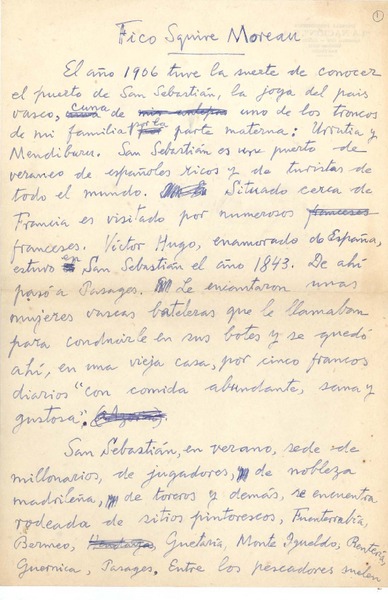 1
Fico Squire Moreau
El año 1906 tuve la suerte de conocer
el puerto de San Sebastián, la joya del país
vasco, cuna de uno de los troncos
de mi familia por la parte materna: Urrutia y
Mendiburu. San Sebastián es un puerto de
veraneo de españoles ricos y de turistas de
todo el mundo. Situado cerca de
Francia es visitado por numerosos franceses
franceses. Víctor Hugo, enamorado de España,
estuvo en San Sebastián el año 1843. De ahí
pasó a Pasages. Le encantaron unas
mujeres vascas bateleras que le llamaban
para conducirle en sus botes y se quedó
ahí, en una vieja casa, por cinco francos
diarios "con comida abundante, sana y
gustosa".
San Sebastián, en verano, sede de
millonarios, de jugadores, de nobleza
madrileña, de toreros y demás, se encuentra
rodeada de sitios pintorescos, Fuenterrabía,
Bermeo, Hendaya, Guetaria, Monte Igueldo, Rentería,
Guernica, Pasages. Entre los pescadores suelen